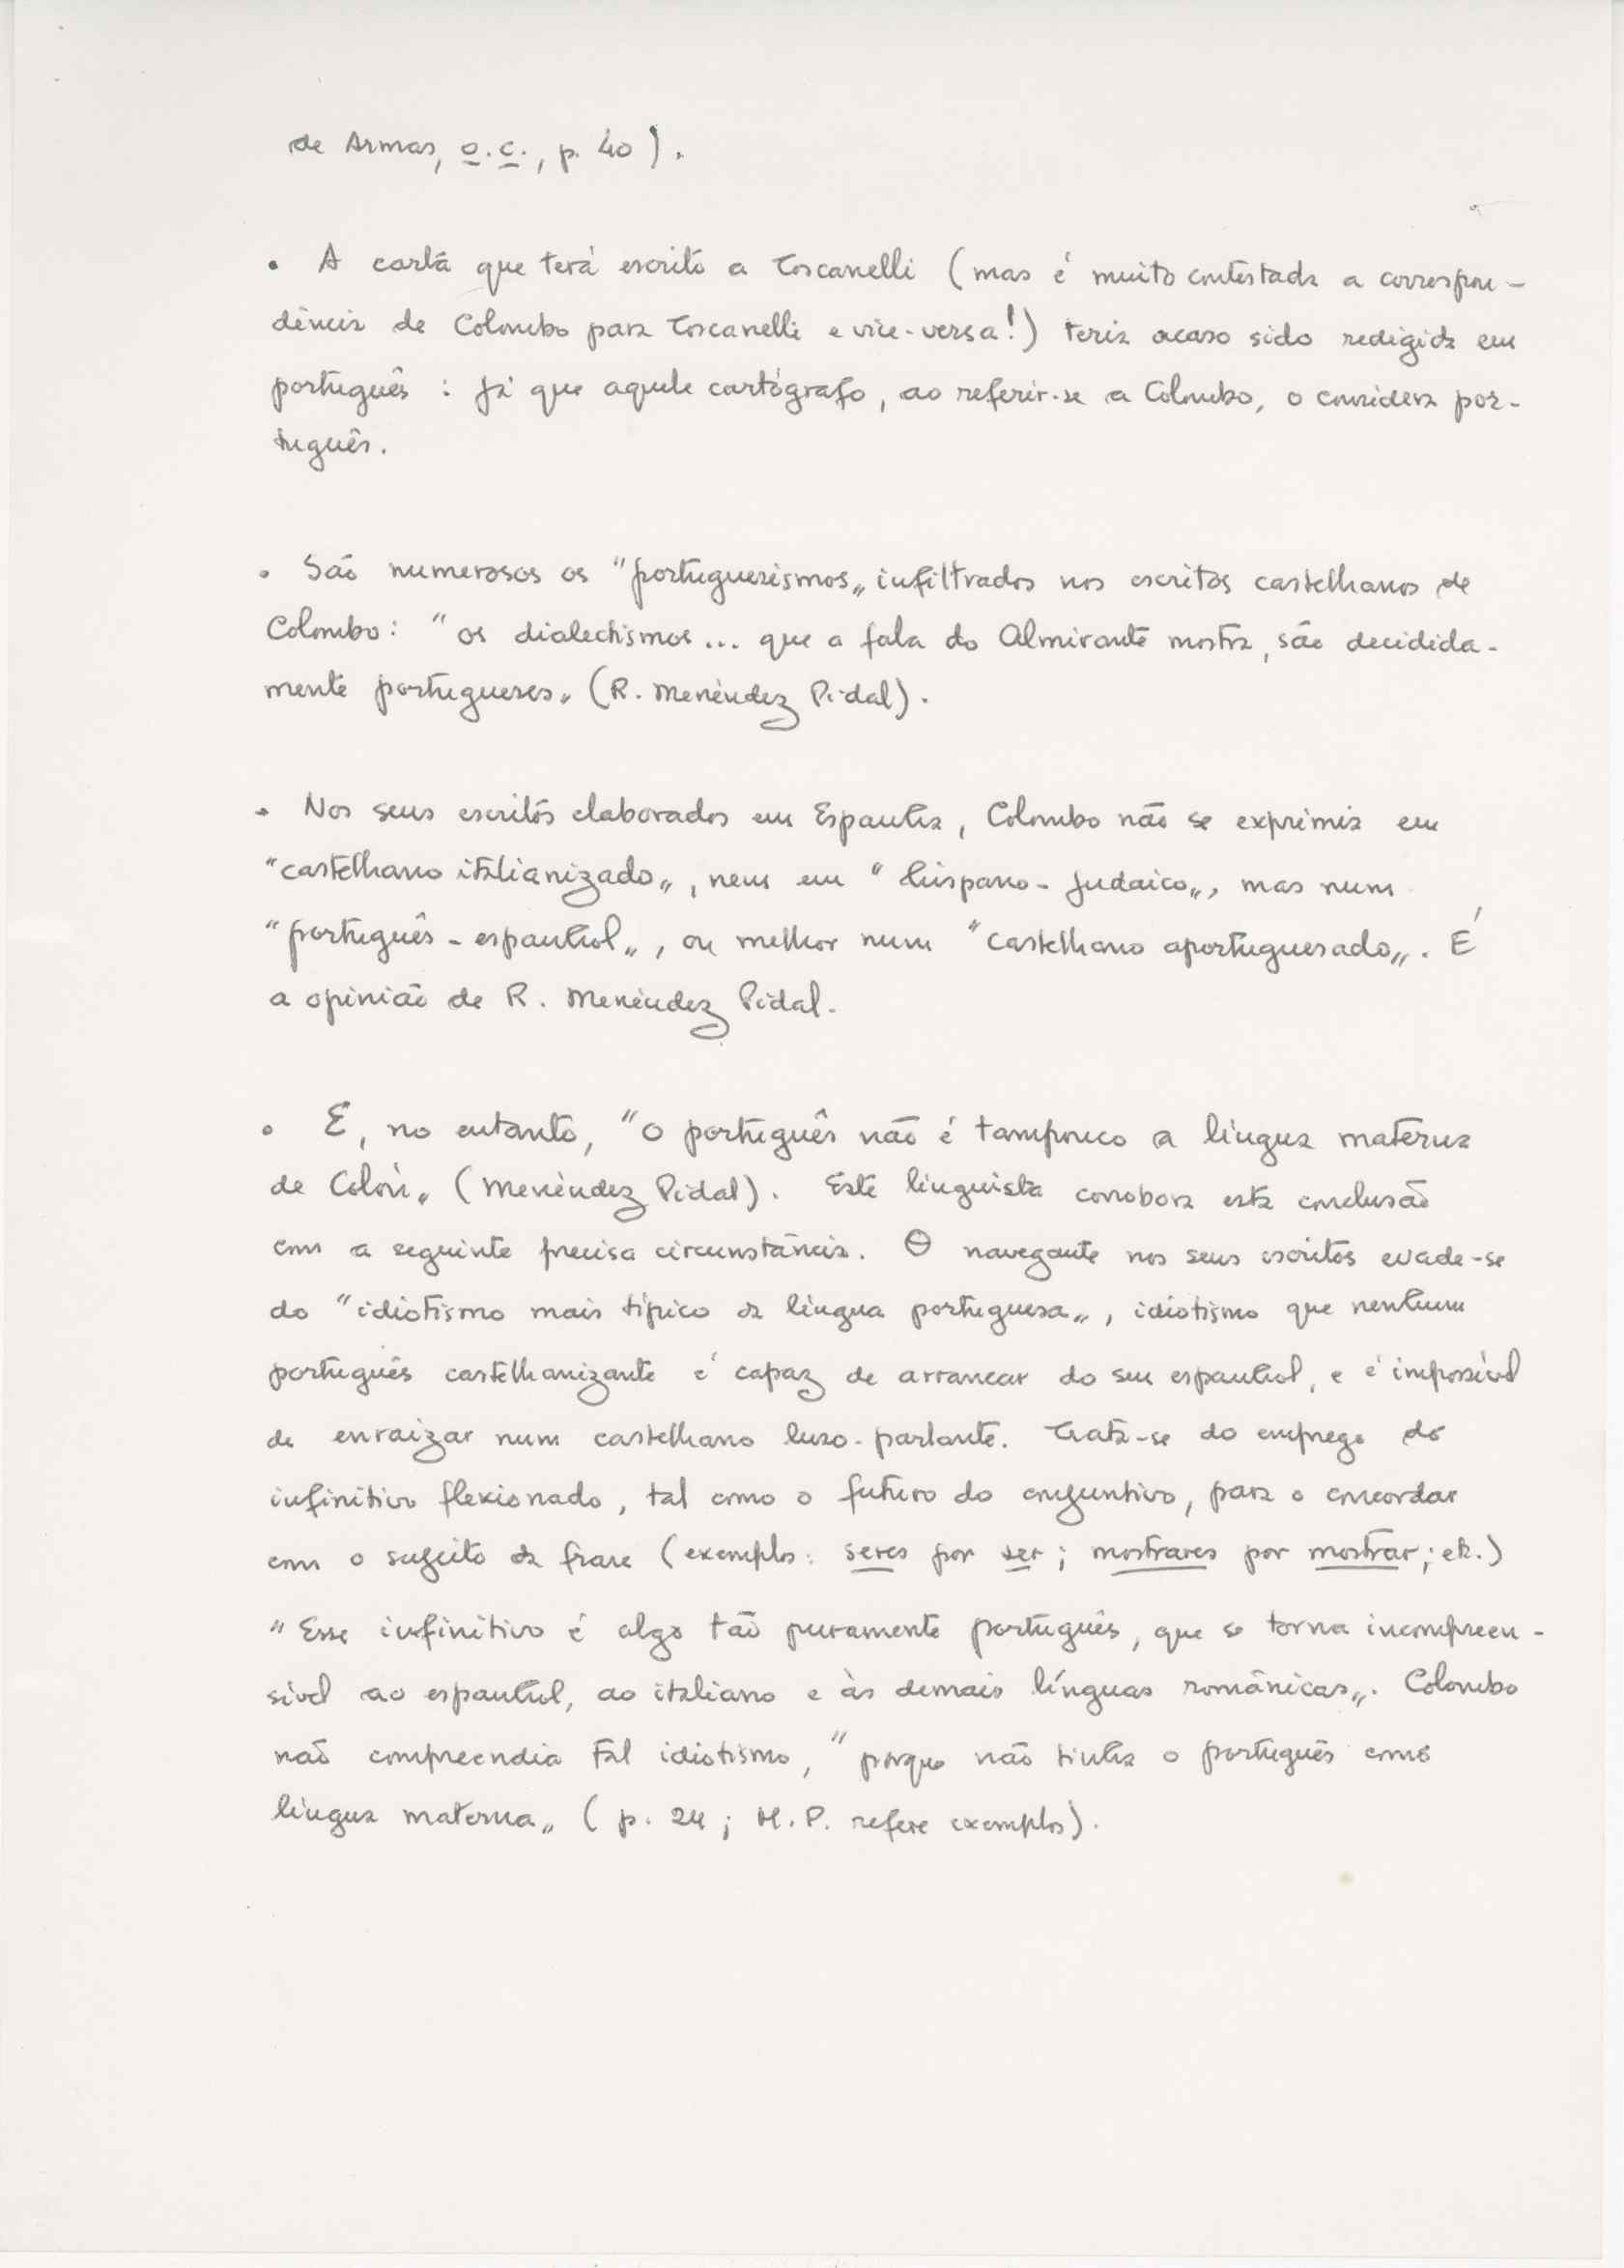 de Armas, o.c., p. 40).
• A carta que terá escrito a Toscanelli (mas é muito contestada a correspon-
dência de Colombo para Toscanelli e vice-versa!) teria acaso sido redigida em
português : já que aquele cartógrafo, ao referir-se a Colombo, o considera por-
tuguês.
• São numerosos os "portuguesismos" infiltrados nos escritos castelhanos de
Colombo: "os dialectismos... que a fala do Almirante mostra, são decidida-
mente portugueses" (R. Menéndez Pidal).
• Nos seus escritos elaborados em Espanha, Colombo não se exprimia em
"castelhano italianizado", nem em "hispano-judaico", mas num
"português-espanhol", ou melhor num "castelhano aportuguesado". É
a opinião de R. Menéndez Pidal.
• E, no entanto, "o português não é tampouco a língua materna
de Colón" (Menéndez Pidal). Este linguista corrobora esta conclusão
com a seguinte precisa circunstância. O navegante nos seus escritos evade-se
do "idiotismo mais típico da língua portuguesa", idiotismo que nenhum
português castelhanizante é capaz de arrancar do seu espanhol, e é impossível
de enraizar num castelhano luso-parlante. Trata-se do emprego do
infinitivo flexionado, tal como o futuro do conjuntivo, para o concordar
com o sujeito da frase (exemplo: seres por ser; mostrares por mostrar; etc.)
"Esse infinitivo é algo tão puramente português, que se torna incompreen-
sível ao espanhol, ao italiano e às demais línguas românicas". Colombo
não compreendia tal idiotismo, "porque não tinha o português como
língua materna" (p. 24; M.P. refere exemplos).